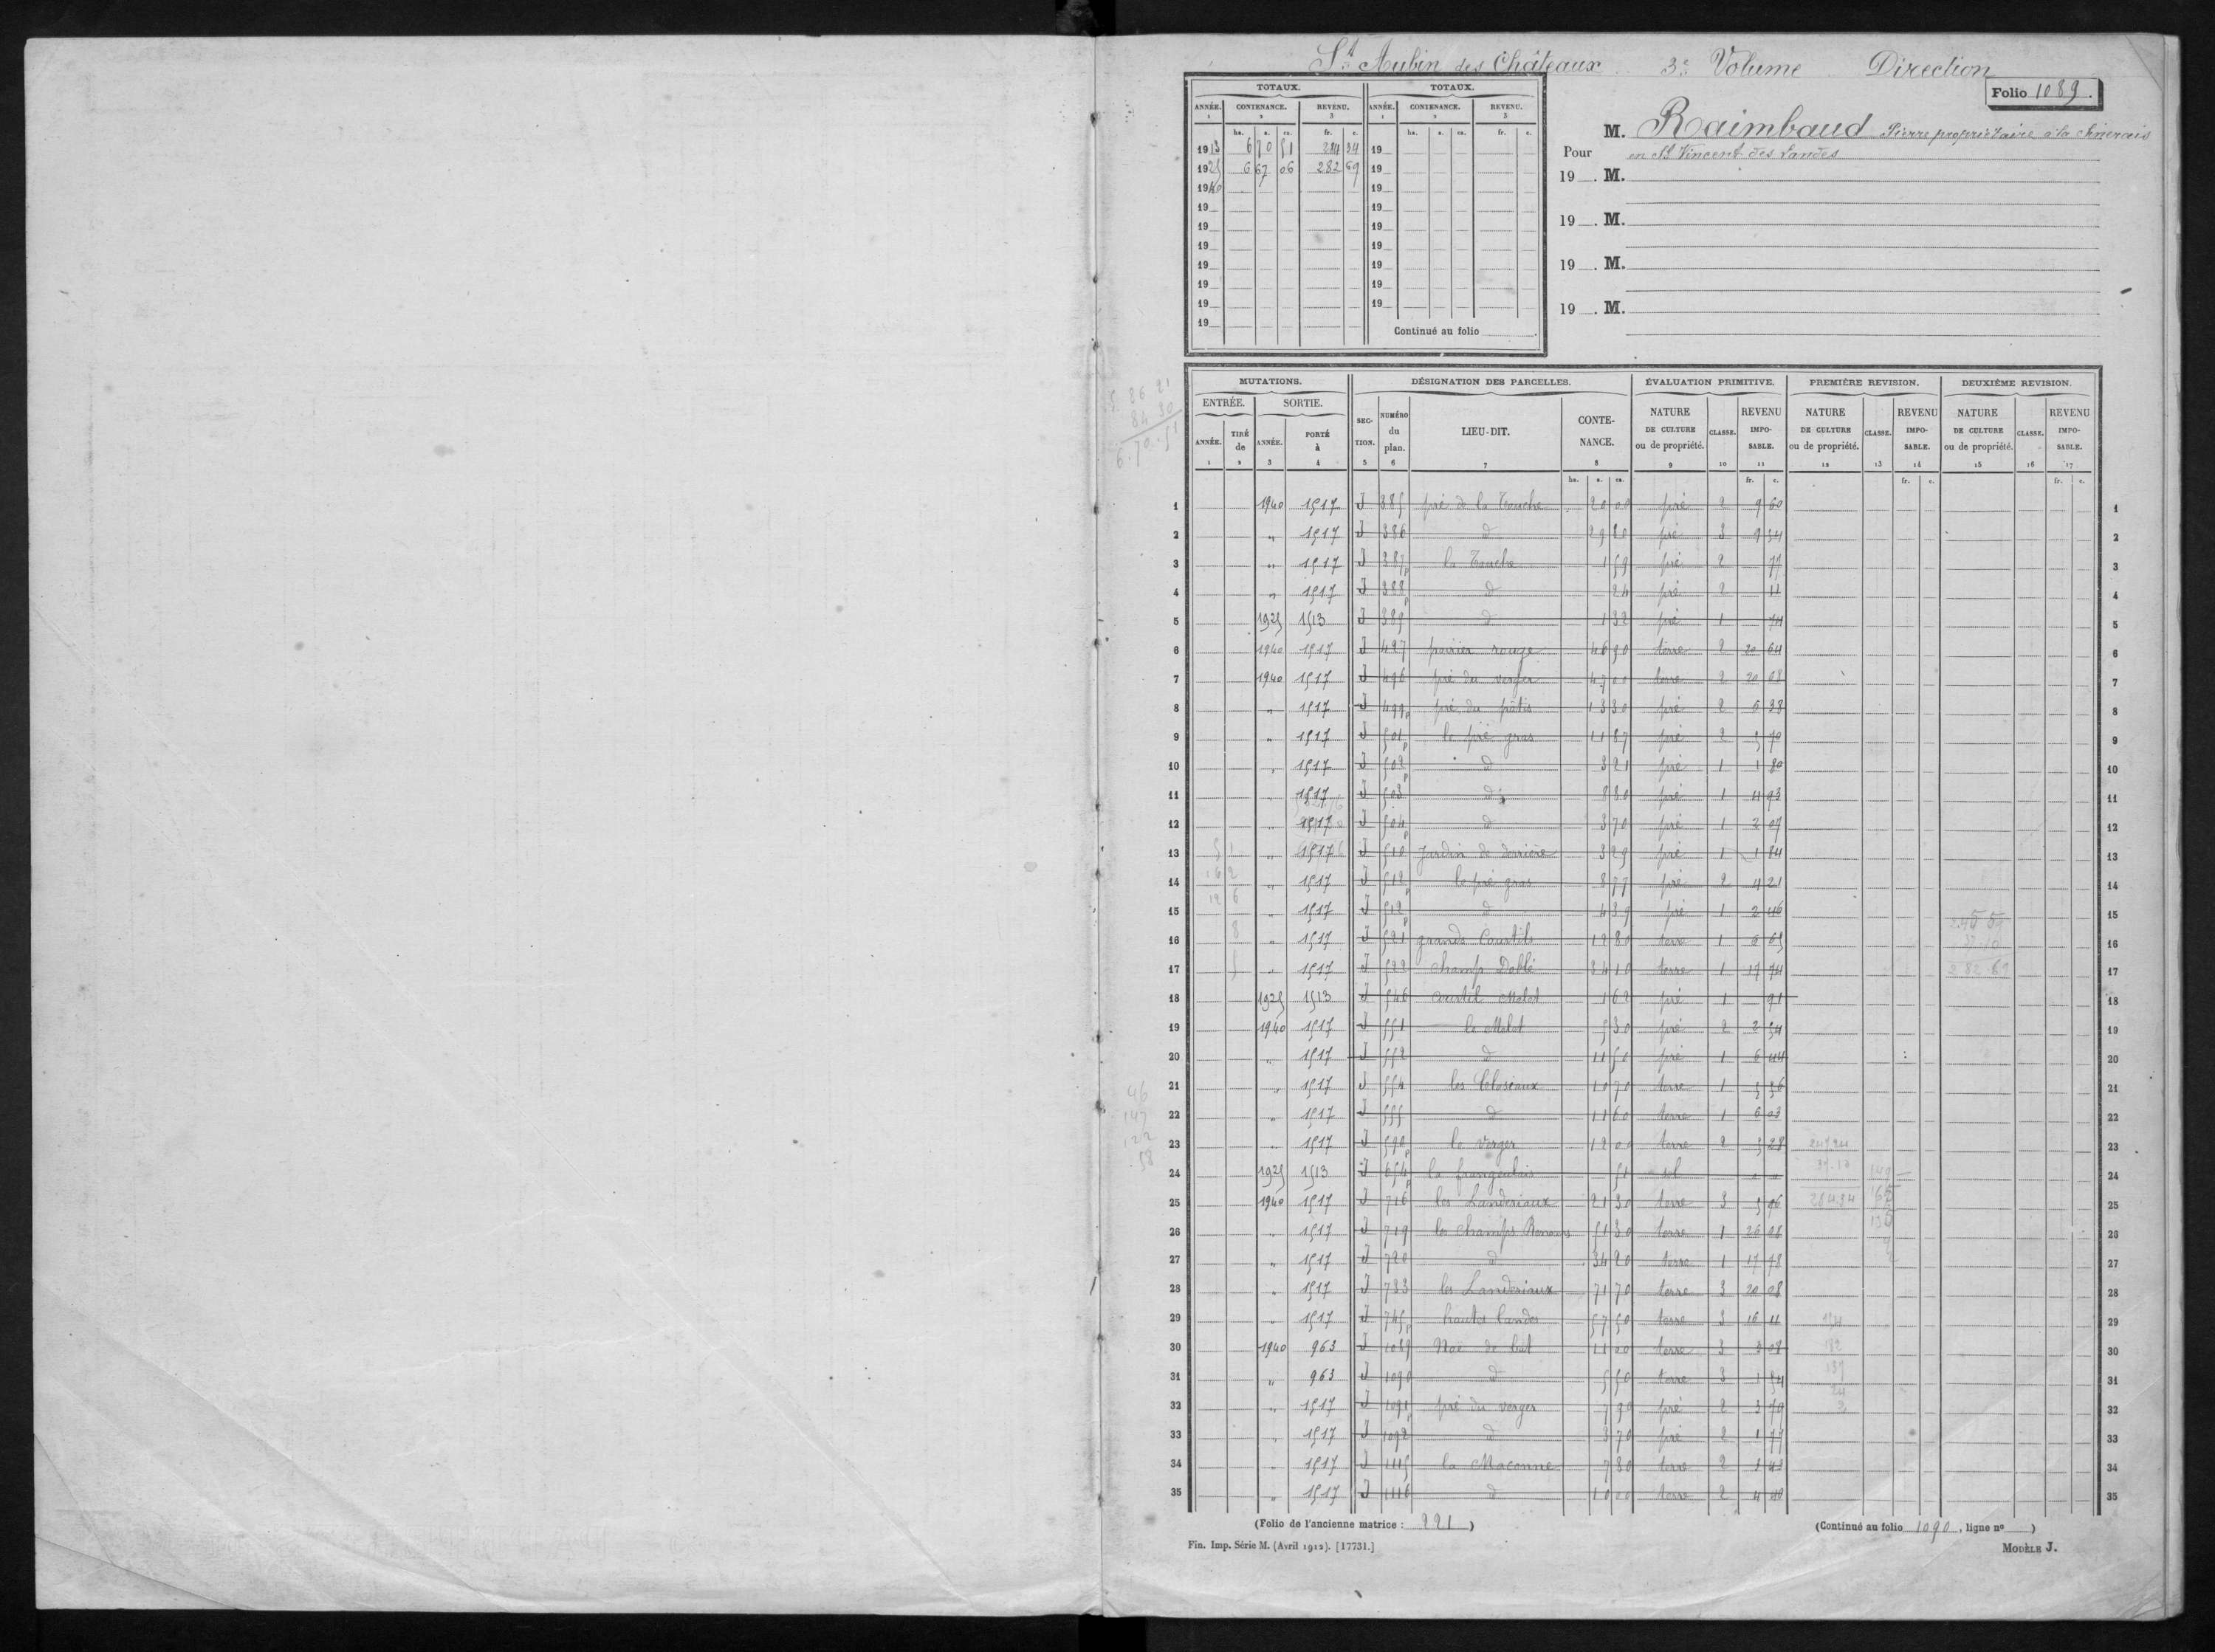 St Aubin des Châteaux 3e Volume Direction
Folio 1089.
TOTAUX. TOTAUX.
ANNÉE. CONTENANCE. REVENU. ANNÉE. CONTENANCE. REVENU.
1 2 3 1 2 3
ha. a. ca. fr. c. ha. a. ca. fr. c.
1913 6 70 51 284 34 19
1925 6 67 06 282 69 19
1940 19
19 19
19 19
19 19
19 19
19 19
19 19
19 Continué au folio
M. Raimbaud Pierre propriétaire à la
Pour en St Vincent des Landes
19 . M.
19 . M.
19 . M.
19 . M.
MUTATIONS. DÉSIGNATION DES PARCELLES. ÉVALUATION PRIMITIVE. PREMIÈRE REVISION. DEUXIÈME REVISION.
ENTRÉE. SORTIE. SECTION. NUMÉRO du plan. LIEU-DIT. CONTENANCE. NATURE DE CULTURE ou de propriété. CLASSE. REVENU IMPOSABLE. NATURE DE CULTURE ou de propriété. CLASSE. REVENU IMPOSABLE. NATURE DE CULTURE ou de propriété. CLASSE. REVENU IMPOSABLE.
ANNÉE. TIRÉ de ANNÉE. PORTÉ à
1 2 3 4 5 6 7 8 9 10 11 12 13 14 15 16 17
ha. a. ca. fr. c. fr. c. fr. c.
1 1940 1517 J 385 pré de la Touche 20 00 pré 2 9 60 1
2 " 1517 J 386 d 29 80 pré 3 9 54 2
3 " 1517 J 387p la Touche 1 59 pré 2 77 3
4 " 1517 J 388p d 24 pré 2 11 4
5 1925 1513 J 389 d 1 32 pré 1 74 5
6 1940 1517 J 427 poirier rouge 46 90 terre 2 20 64 6
7 1940 1517 J 496 pré du verger 47 00 terre 2 20 68 7
8 " 1517 J 499p pré du pâtis 13 30 pré 2 6 38 8
9 " 1517 J 501p le pré gras 11 87 pré 2 5 70 9
10 " 1517 J 502p d 3 21 pré 1 1 80 10
11 1517 J 503 d 8 80 pré 1 4 93 11
12 " 1517 J 504p d 3 70 pré 1 2 07 12
13 " 1517 J 510 Jardin de derrière 3 29 pré 1 1 84 13
14 " 1517 J 512p le pré gras 8 77 pré 2 4 21 14
15 " 1517 J 512p d 4 39 pré 1 2 46 15
16 " 1517 J 521 grands Courtils 12 80 terre 1 6 65 16
17 " 1517 J 522 Champ Dablé 34 10 terre 1 17 74 17
18 1925 1513 J 546 Courtil Melot 1 62 pré 1 91 18
19 1940 1517 J 551 le Melot 5 30 pré 2 2 54 19
20 " 1517 J 552 d 11 50 pré 1 6 44 20
21 " 1517 J 554 les Closeaux 10 70 terre 1 5 56 21
22 " 1517 J 555 d 11 60 terre 1 6 03 22
23 " 1517 J 590p le verger 12 00 terre 2 5 28 23
24 1925 1513 J 654p 51 sol 24
25 1940 1517 J 716 les Landeriaux 21 30 terre 3 5 96 25
26 " 1517 J 719 les Champs 51 30 terre 1 26 68 26
27 " 1517 J 720 d 34 20 terre 1 17 78 27
28 " 1517 J 733 les Landeriaux 71 70 terre 3 20 08 28
29 " 1517 J 745p hautes landes 57 50 terre 3 16 11 29
30 1940 963 J 1089 Noë de but 11 00 terre 3 3 08 30
31 " 963 J 1090 d 5 50 terre 3 1 54 31
32 " 1517 J 1091p pré du verger 7 90 pré 2 3 79 32
33 " 1517 J 1092 d 3 70 pré 2 1 77 33
34 " 1517 J 1115 la Maconne 7 80 terre 2 3 43 34
35 " 1517 J 1116 d 10 00 terre 2 4 40 35
(Folio de l'ancienne matrice : 221 ) (Continué au folio 1090 , ligne nº )
Fin. Imp. Série M. (Avril 1912). [17731.] MODÈLE J.